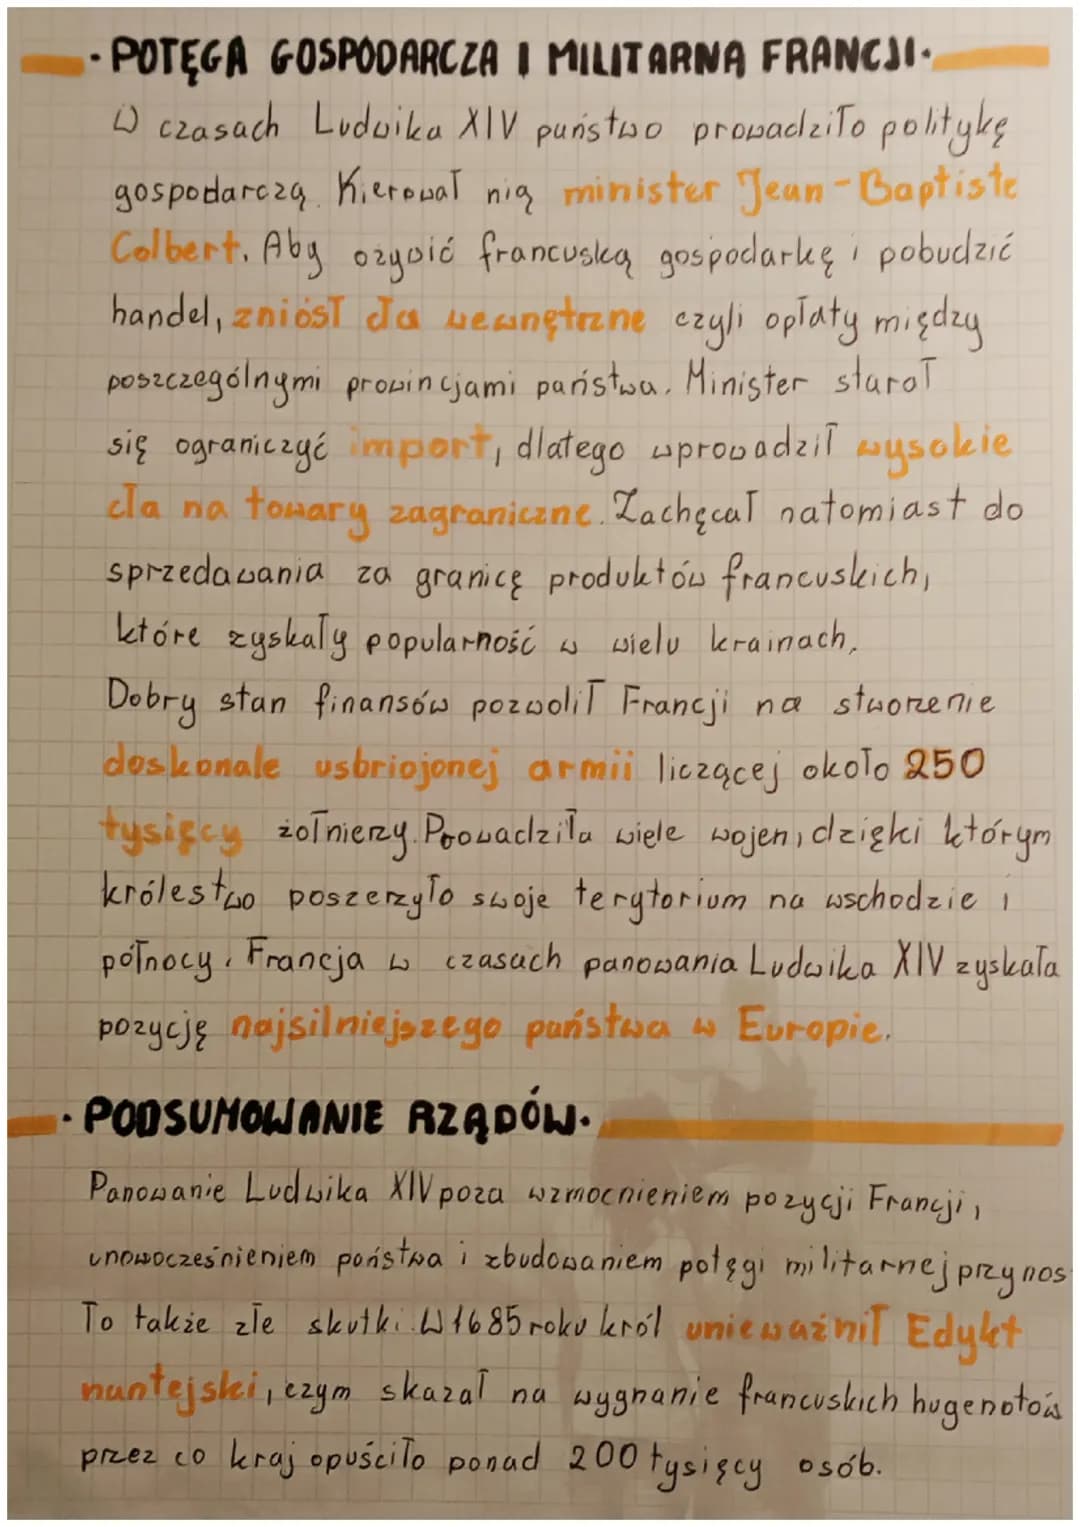 · POTĘGA GOSPODARCZA I MILITARNA FRANCJI ·
W czasach Ludwika XIV państwo prowadziło politykę
gospodarczą. Kierował nią minister Jean-Baptiste
Colbert. Aby ożywić francuską gospodarkę i pobudzić
handel, zniósł cła wewnętrzne czyli opłaty między
poszczególnymi prowincjami państwa. Minister starał
się ograniczyć import, dlatego wprowadził wysokie
cła na towary zagraniczne. Zachęcał natomiast do
sprzedawania za granicę produktów francuskich,
które zyskały popularność w wielu krainach.
Dobry stan finansów pozwolił Francji na stworzenie
doskonale usbriojonej armii liczącej około 250
tysięcy żołnierzy. Prowadziła wiele wojen, dzięki którym
królestwo poszerzyło swoje terytorium na wschodzie i
północy. Francja w czasach panowania Ludwika XIV zyskała
pozycję najsilniejszego państwa w Europie.
· PODSUMOWANIE RZĄDÓW ·
Panowanie Ludwika XIV poza wzmocnieniem pozycji Francji,
unowocześnieniem państwa i zbudowaniem potęgi militarnej przynos
ło także złe skutki. W 1685 roku król unieważnił Edykt
nantejski, czym skazał na wygnanie francuskich hugenotów
przez co kraj opuściło ponad 200 tysięcy osób.